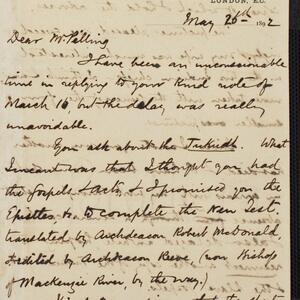 LONDON, E.C.
May 26th 1892
Dear Mr Pilling
I have been an unconscionable
time in replying to your kind note of
March 16, but the delay was really
unavoidable.
You ask about the Tukudh. What
I meant was that I thought you had
the Gospels & Acts, & I promised you the
Epistles &c to complete the New Test.
translated by Archdeacon Robert McDonald
& edited by Archdeacon Reeve (now Bishop
of Mackenzie River, by the way.)